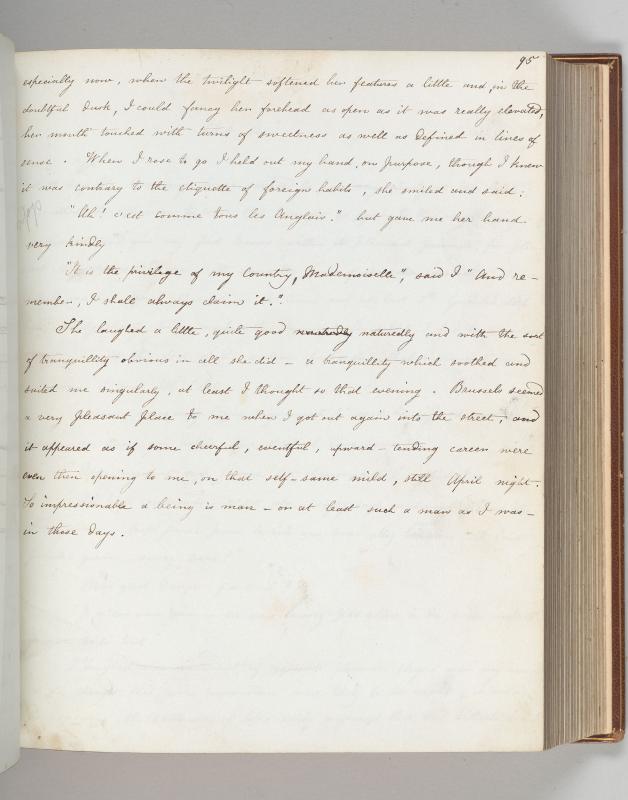 95
especially now, when the twilight softened her features a little and, in the
doubtful dusk, I could fancy her forehead as open as it was really elevated,
her mouth touched with turns of sweetness as well as defined in lines of
sense. When I rose to go I held out my hand, on purpose, though I knew
it was contrary to the etiquette of foreign habits, she smiled and said:
"Ah! c'est comme tous les Anglais." but gave me her hand
very kindly
"It is the privilege of my Country, Mademoiselle", said I "And re-
member, I shall always claim it.".
She laughed a little, quite good naturedly and with the sort
of tranquillity obvious in all she did - a tranquillity which soothed and
suited me singularly, at least I thought so that evening. Brussels seemed
a very pleasant place to me when I got out again into the street, and
it appeared as if some cheerful, eventful, upward-tending career were
even then opening to me, on that self-same mild, still April night.
So impressionable a being is man - or at least such a man as I was -
in those days.